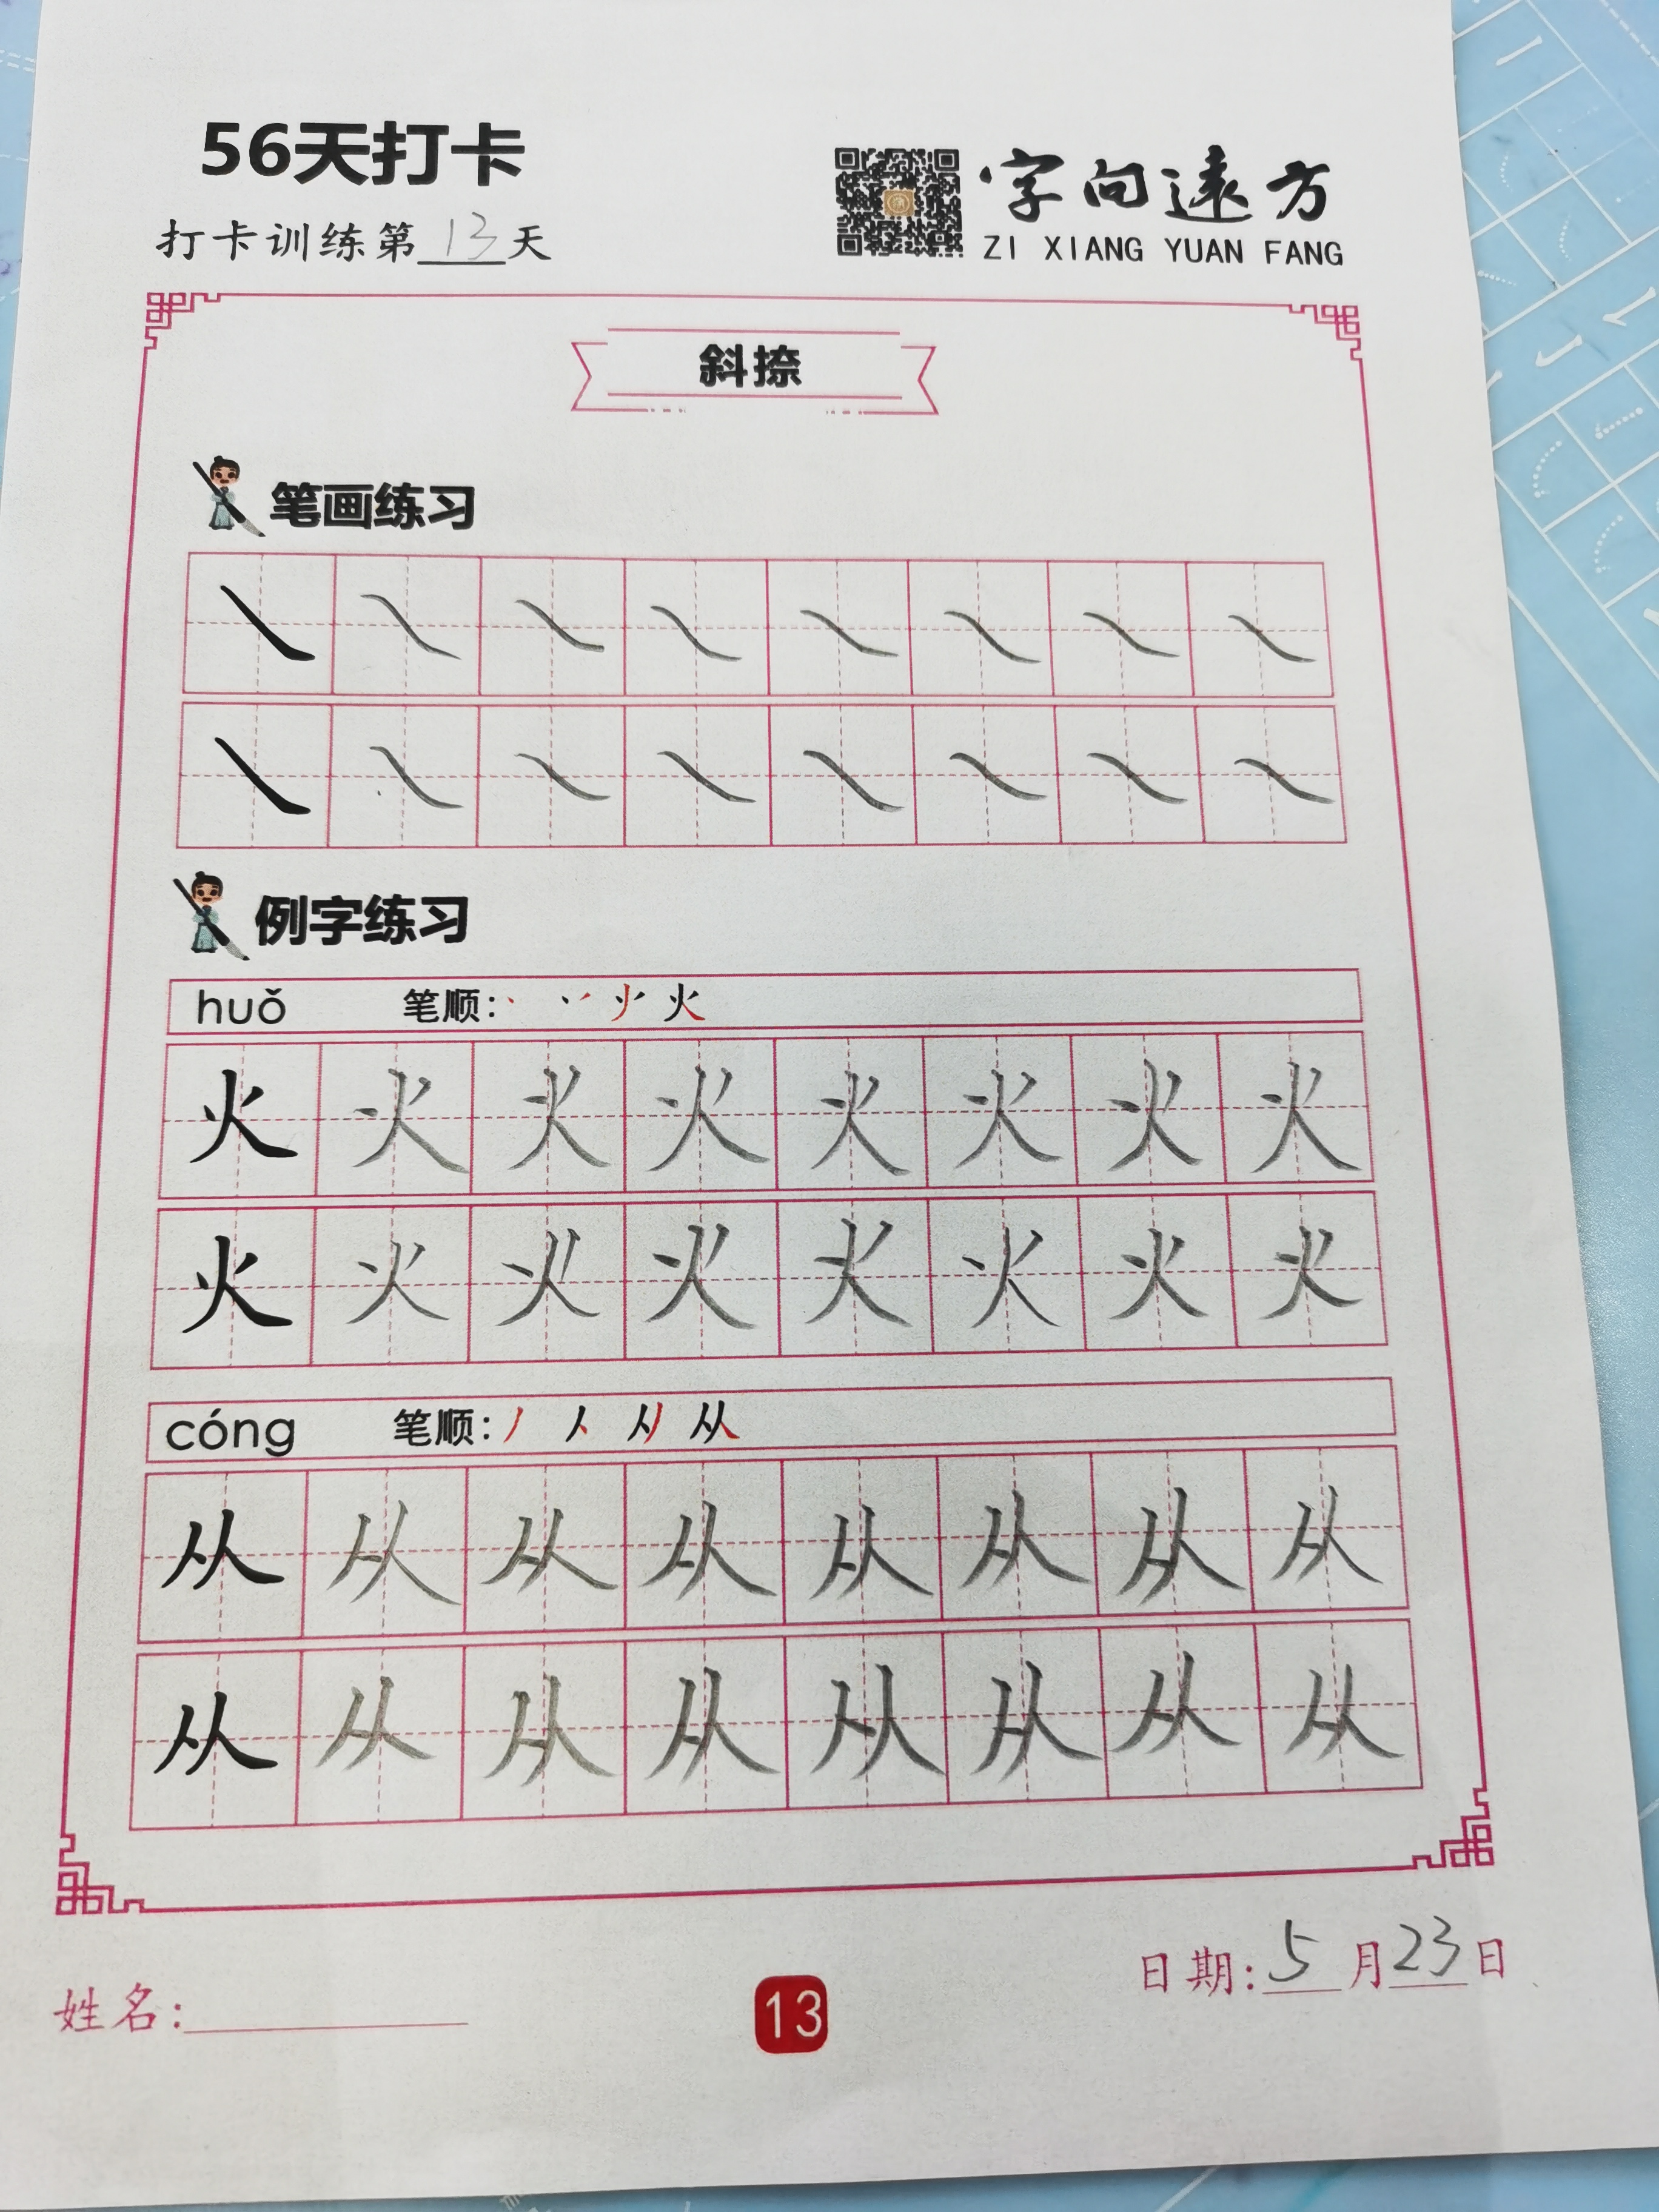 56天打卡
打卡训练第13天
字向遠方
ZI XIANG YUAN FANG
斜捺
笔画练习
㇏ ㇏ ㇏ ㇏ ㇏ ㇏ ㇏ ㇏
㇏ ㇏ ㇏ ㇏ ㇏ ㇏ ㇏ ㇏
例字练习
huǒ 笔顺: 火
火 火 火 火 火 火 火 火
火 火 火 火 火 火 火 火
cóng 笔顺: 从
从 从 从 从 从 从 从 从
从 从 从 从 从 从 从 从
姓名:
13
日期:5月23日